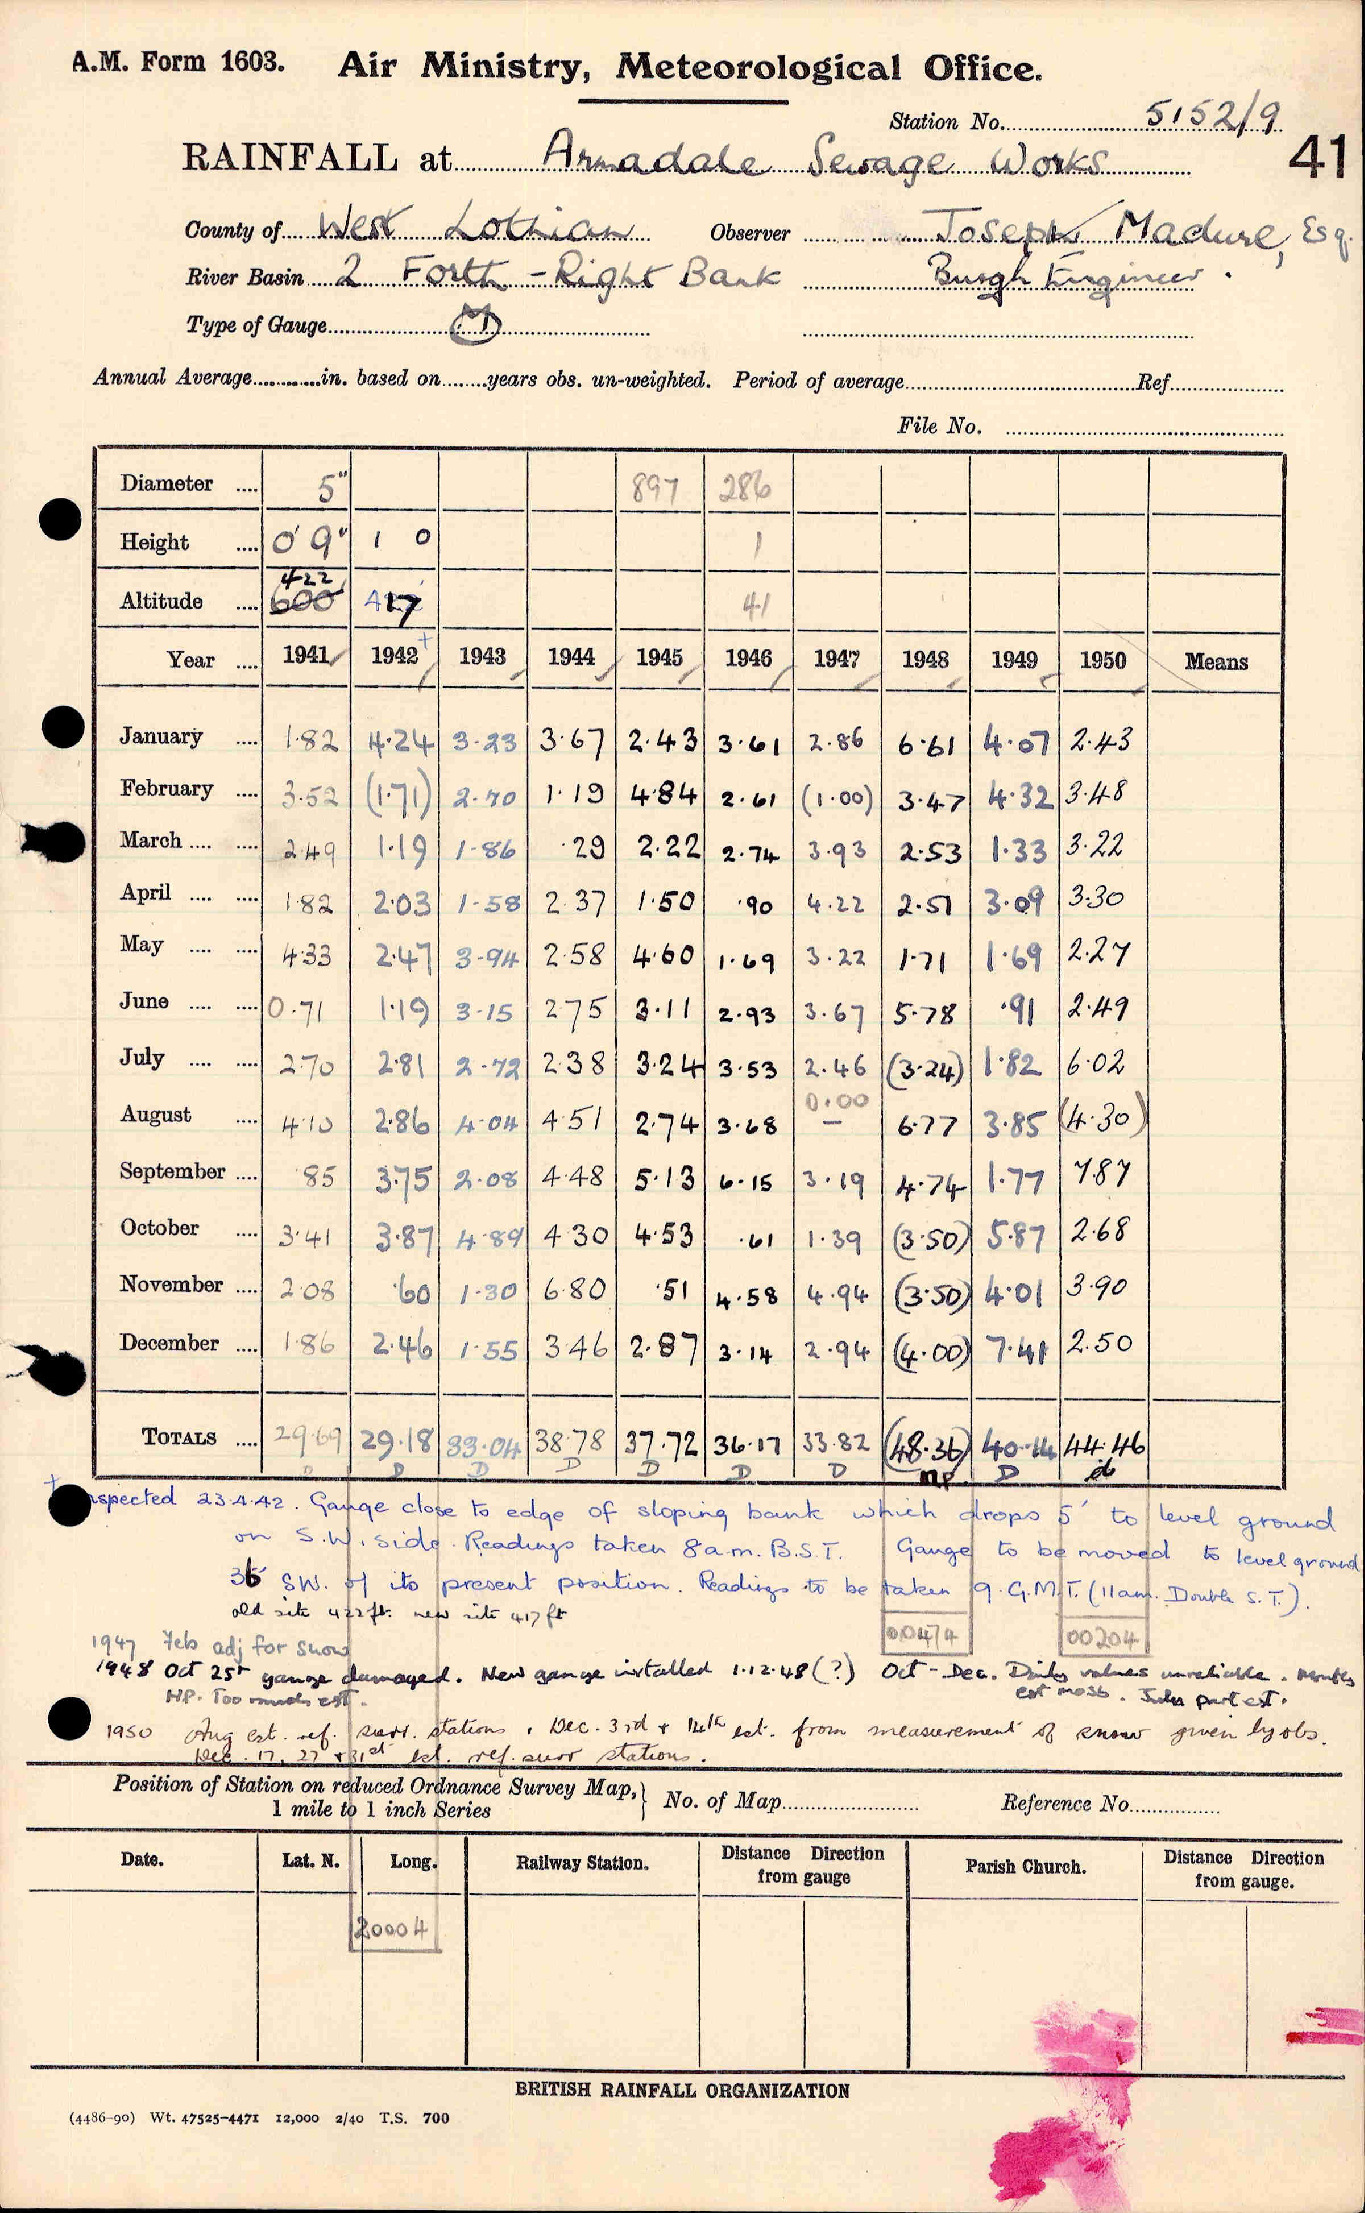 A.M. Form 1603. Air Ministry, Meteorological Office.
Station No. 5152/9
RAINFALL at Armadale Sewage Works 41
County of West Lothian Observer Joseph Esq.
River Basin 2 Forth - Right Bank Burgh Engineer.
Type of Gauge M
Annual Average in. based on years obs. un-weighted. Period of average Ref.
File No.
Diameter 5" 897 286
Height 0' 9" 1 0 1
422
Altitude 600 417 41
Year 1941 1942 1943 1944 1945 1946 1947 1948 1949 1950 Means
January 1.82 4.24 3.23 3.67 2.43 3.61 2.86 6.61 4.07 2.43
February 3.52 (1.71) 2.70 1.19 4.84 2.61 (1.00) 3.47 4.32 3.48
March 2.49 1.19 1.86 .29 2.22 2.74 3.93 2.53 1.33 3.22
April 1.82 2.03 1.58 2.37 1.50 .90 4.22 2.51 3.09 3.30
May 4.33 2.47 3.94 2.58 4.60 1.69 3.22 1.71 1.69 2.27
June 0.71 1.19 3.15 2.75 3.11 2.93 3.67 5.78 .91 2.49
July 2.70 2.81 2.72 2.38 3.24 3.53 2.46 (3.24) 1.82 6.02
0.00
August 4.10 2.86 4.04 4.51 2.74 3.68 – 6.77 3.85 (4.30)
September .85 3.75 2.08 4.48 5.13 6.15 3.19 4.74 1.77 7.87
October 3.41 3.87 4.89 4.30 4.53 .61 1.39 (3.50) 5.87 2.68
November 2.08 .60 1.30 6.80 .51 4.58 4.94 (3.50) 4.01 3.90
December 1.86 2.46 1.55 3.46 2.87 3.14 2.94 (4.00) 7.41 2.50
TOTALS 29.69 29.18 33.04 38.78 37.72 36.17 33.82 (48.36) 40.14 44.46
D D D D D D D NP. D
+ Inspected 23.4.42. Gauge close to edge of sloping bank which drops 5' to level ground
on S.W. side. Readings taken 8 a.m. B.S.T. Gauge to be moved to level ground
36' SW. of its present position. Readings to be taken 9 G.M.T. (11am. Double S.T.).
old site 422 ft. new site 417 ft
00474 00204
1947 Feb adj for snow
1948 Oct 25th gauge damaged. New gauge installed 1.12.48 (?) Oct - Dec. Daily values unreliable. Months
NP. Too much est. est July part est.
1950 Aug est. ref. surr. stations, Dec. 3rd + 14th est. from measurement of snow given by obs.
Dec. 17, 27 + 31st est. ref. surr stations.
Position of Station on reduced Ordnance Survey Map, } No. of Map Reference No.
1 mile to 1 inch Series
Date. Lat. N. Long. Railway Station. Distance Direction from gauge Parish Church. Distance Direction from gauge.
20004
BRITISH RAINFALL ORGANIZATION
(4486-90) Wt. 47525-4471 12,000 2/40 T.S. 700